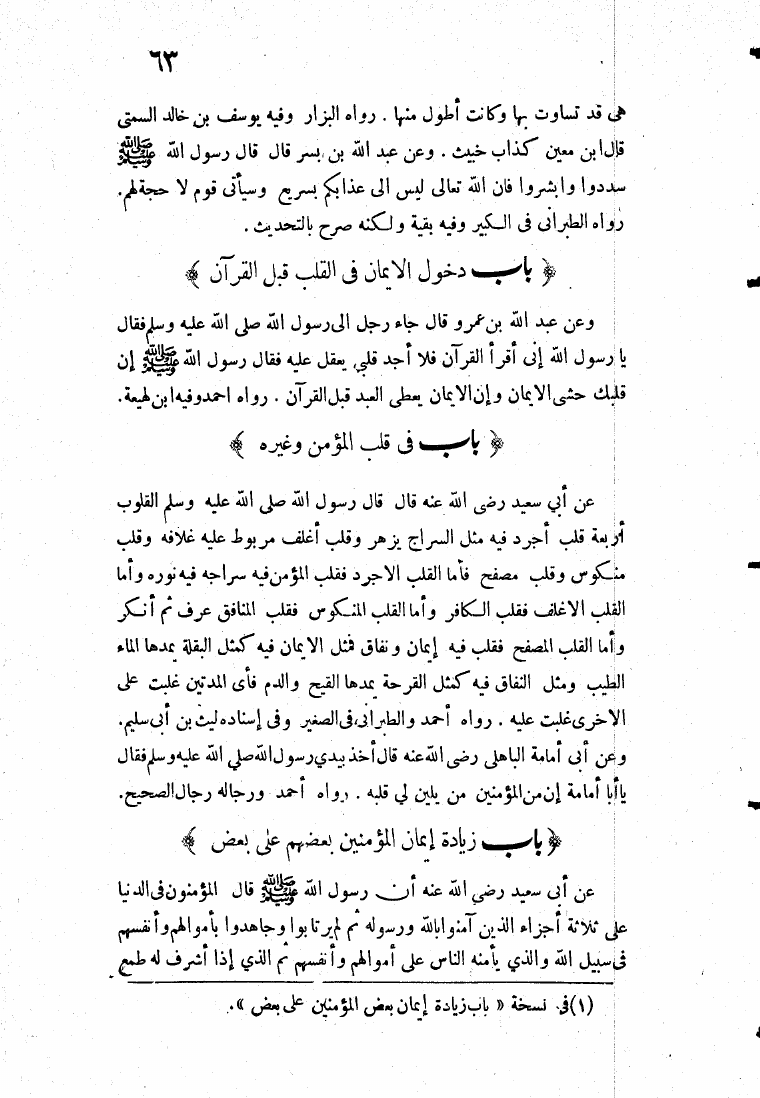 ٦٣
هى قد تساوت بها وكانت أطول منها . رواه البزار وفيه يوسف بن خالد السمتى
قال ابن معين كذاب خيث . وعن عبد الله بن بسر قال قال رسول الله ﷺ
سددوا وابشروا فان الله تعالى ليس الى عذابكم بسريع وسيأتى قوم لا حجة لهم.
رواه الطبرانى فى الكبير وفيه بقية ولكنه صرح بالتحديث .
﴿ باب دخول الايمان فى القلب قبل القرآن ﴾
وعن عبد الله بن عمرو قال جاء رجل الى رسول الله صلى الله عليه وسلم فقال
يا رسول الله إنى أقرأ القرآن فلا أجد قلبى يعقل عليه فقال رسول الله ﷺ إن
قلبك حشى الايمان وإن الايمان يعطى العبد قبل القرآن . رواه احمد وفيه ابن لهيعة.
﴿ باب فى قلب المؤمن وغيره ﴾
عن أبي سعيد رضى الله عنه قال قال رسول الله صلى الله عليه وسلم القلوب
أربعة قلب أجرد فيه مثل السراج يزهر وقلب أغلف مربوط عليه غلافه وقلب
منكوس وقلب مصفح فأما القلب الاجرد فقلب المؤمن فيه سراجه فيه نوره وأما
القلب الاغلف فقلب الكافر وأما القلب المنكوس فقلب المنافق عرف ثم أنكر
وأما القلب المصفح فقلب فيه إيمان ونفاق فمثل الايمان فيه كمثل البقلة يمدها الماء
الطيب ومثل النفاق فيه كمثل القرحة يمدها القيح والدم فأى المدتين غلبت على
الاخرى غلبت عليه . رواه أحمد والطبرانى فى الصغير وفى إسناده ليث بن أبى سليم.
وعن أبى أمامة الباهلى رضى الله عنه قال أخذ بيدي رسول الله صلي الله عليه وسلم فقال
ياأبا أمامة إن من المؤمنين من يلين لي قلبه . رواه أحمد ورجاله رجال الصحيح.
﴿ باب زيادة إيمان المؤمنين بعضهم على بعض ﴾
عن أبى سعيد رضي الله عنه أن رسول الله ﷺ قال المؤمنون فى الدنيا
على ثلاثة أجزاء الذين آمنوا بالله ورسوله ثم لم يرتابوا وجاهدوا بأموالهم وأنفسهم
فى سبيل الله والذي يأمنه الناس على أموالهم وأنفسهم ثم الذي إذا أشرف له طمع
(١) فى نسخة « باب زيادة إيمان بعض المؤمنين على بعض ».